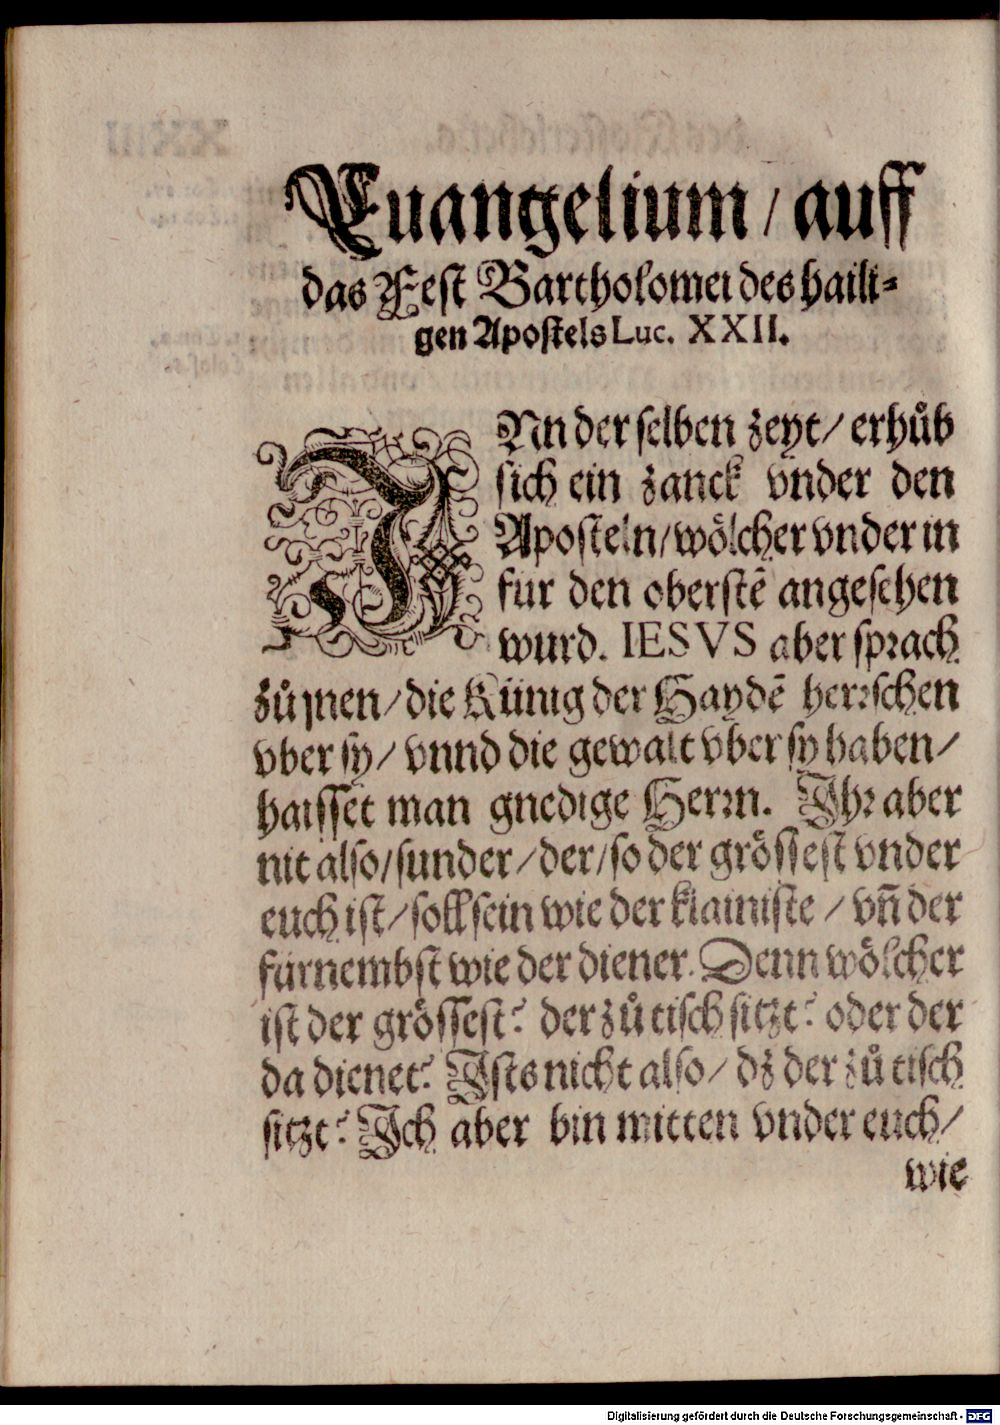 Euangelium / auff
das Fest Bartholomei des haili-
gen Apostels Luc. XXII.
INn der selben zeyt / erhůb
sich ein zanck vnder den
Aposteln / wölcher vnder in
fur den oberstẽ angesehen
wurd. IESVS aber sprach
zů jnen / die Künig der Haydẽ herrschen
vber sy / vnnd die gewalt vber sy haben /
haissẽt man gnedige Herrn. Ihr aber
nit also / sunder / der / so der grössest vnder
euch ist / soll sein wie der klainiste / vñ der
fürnembst wie der diener. Denn wölcher
ist der grössest? der zů tisch sitzt? oder der
da dienet? Ists nicht also / dz der zů tisch
sitzt? Ich aber bin mitten vnder euch /
wie
Digitalisierung gefördert durch die Deutsche Forschungsgemeinschaft - DFG